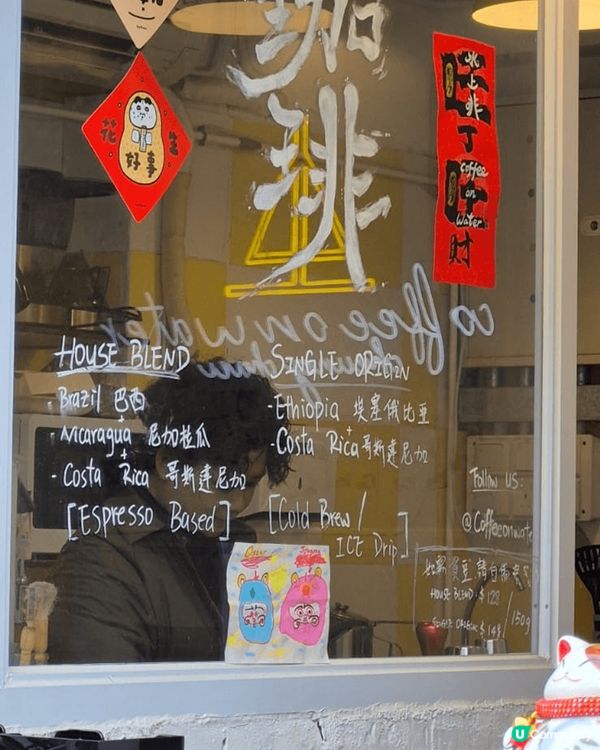 咖
啡
花
生
好事
水上
非
丁
Coffee
on
Water
財
coffee on water
HOUSE BLEND
· Brazil 巴西
+
Nicaragua 尼加拉瓜
+
· Costa Rica 哥斯達尼加
[Espresso Based]
SINGLE ORIGIN
· Ethiopia 埃塞俄比亞
+
· Costa Rica 哥斯達尼加
[Cold Brew /
ICE Drip]
Follow us:
@Coffeeonwate
如需買豆請自備
HOUSE BLEND $128
SINGLE ORIGIN $148 / 150g
U